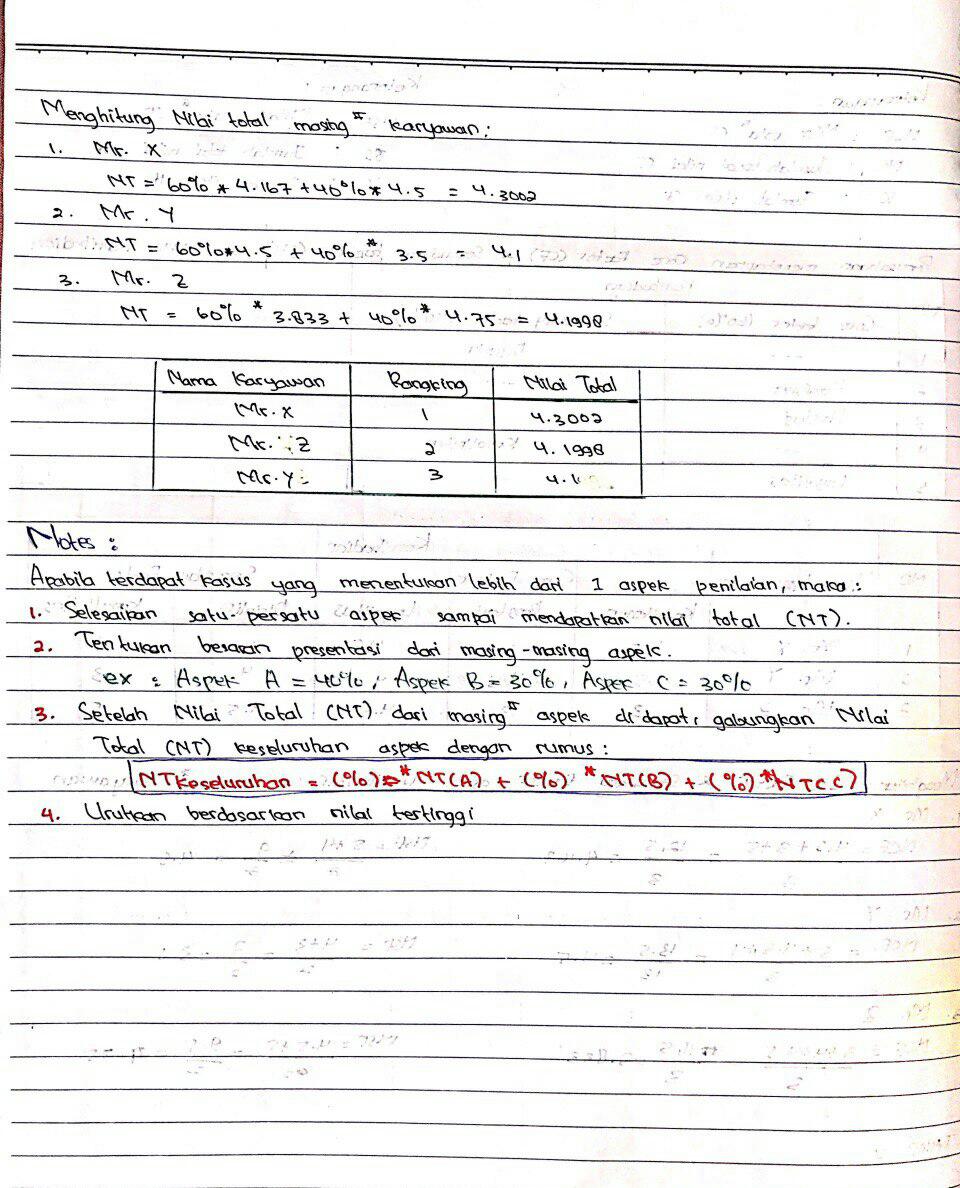 Menghitung Nilai total masing" karyawan:
1. Mr. X
NT = 60% * 4.167 + 40% * 4.5 = 4.3002
2. Mr. Y
NT = 60% * 4.5 + 40% * 3.5 = 4.1
3. Mr. Z
NT = 60% * 3.833 + 40% * 4.75 = 4.1998
Nama Karyawan Rangking Nilai Total
Mr. X 1 4.3002
Mr. Z 2 4.1998
Mr. Y 3 4.1
Notes :
Apabila terdapat kasus yang menentukan lebih dari 1 aspek penilaian, maka :
1. Selesaikan satu-persatu aspek sampai mendapatkan nilai total (NT).
2. Tentukan besaran presentasi dari masing-masing aspek.
ex : Aspek A = 40%, Aspek B = 30%, Aspek C = 30%
3. Setelah Nilai Total (NT) dari masing" aspek di dapat, gabungkan Nilai
Total (NT) keseluruhan aspek dengan rumus :
NTKeseluruhan = (%) * NT(A) + (%) * NT(B) + (%) * NT(C)
4. Urutkan berdasarkan nilai tertinggi